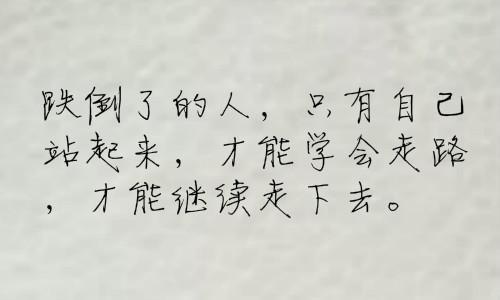 跌倒了的人，只有自己
站起来，才能学会走路
，才能继续走下去。